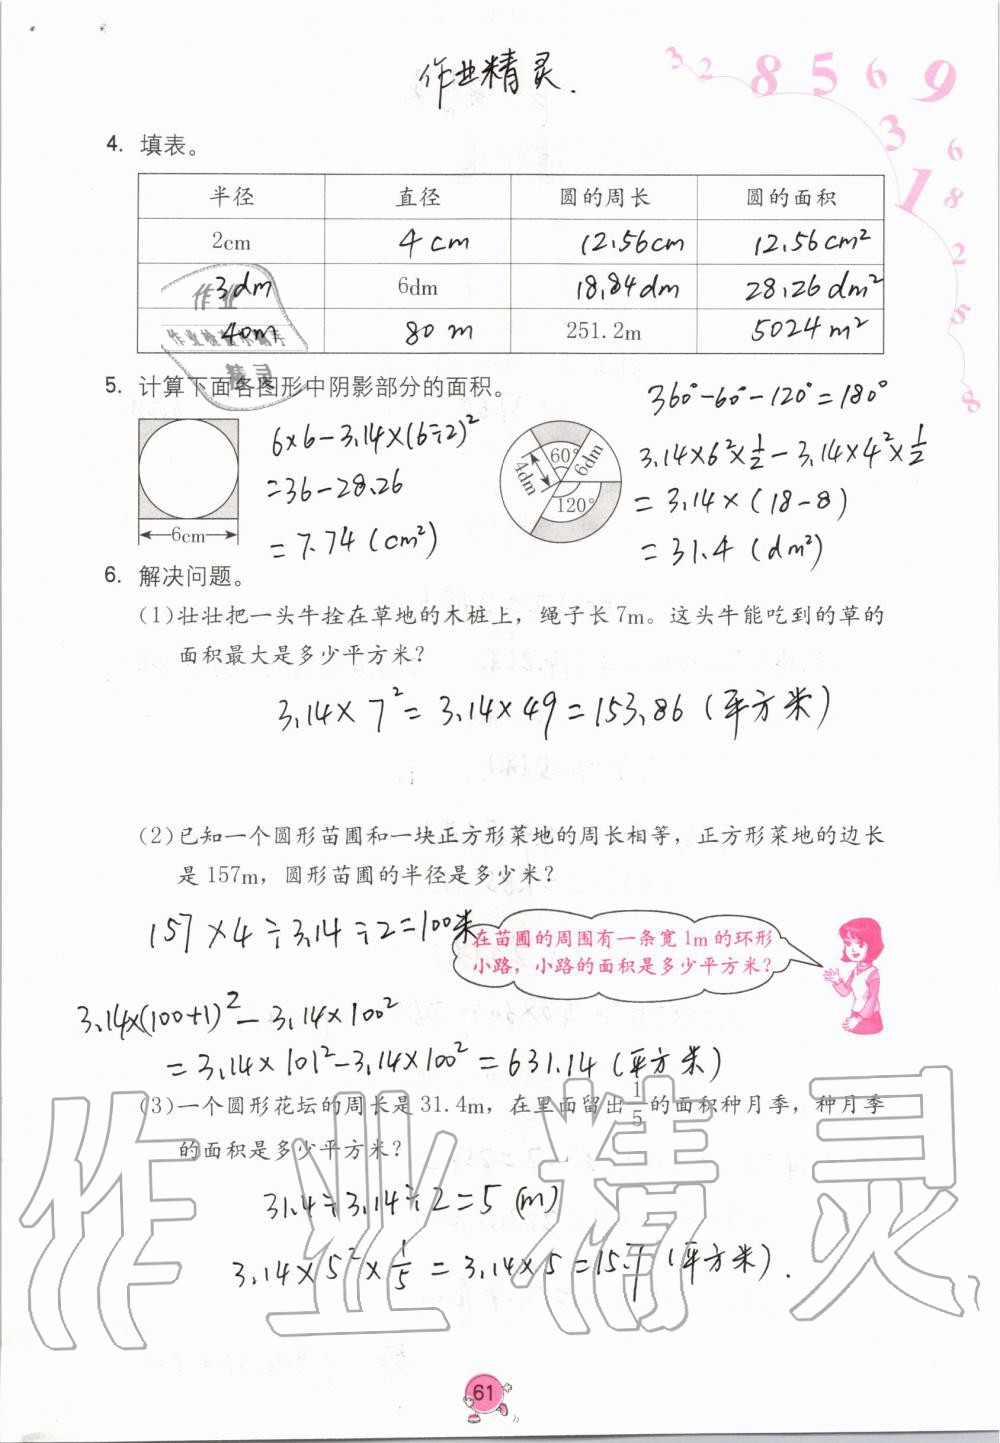 作业精灵.
3 2 8 5 6 9 3 1 6 8 2 5 8
4. 填表。
半径 直径 圆的周长 圆的面积
2cm 4cm 12.56cm 12.56cm²
3dm 6dm 18.84dm 28.26dm²
40m 80m 251.2m 5024m²
作业
精灵
5. 计算下面各图形中阴影部分的面积。
6cm
6×6-3.14×(6÷2)²
=36-28.26
=7.74(cm²)
60°
4dm
6dm
120°
360°-60°-120°=180°
3.14×6²×1/2-3.14×4²×1/2
=3.14×(18-8)
=31.4(dm²)
6. 解决问题。
(1)壮壮把一头牛拴在草地的木桩上，绳子长7m。这头牛能吃到的草的
面积最大是多少平方米？
3.14×7²=3.14×49=153.86(平方米)
(2)已知一个圆形苗圃和一块正方形菜地的周长相等，正方形菜地的边长
是157m，圆形苗圃的半径是多少米？
157×4÷3.14÷2=100米
在苗圃的周围有一条宽1m的环形
小路，小路的面积是多少平方米？
3.14×(100+1)²-3.14×100²
=3.14×101²-3.14×100²=631.14(平方米)
(3)一个圆形花坛的周长是31.4m，在里面留出1/5的面积种月季，种月季
的面积是多少平方米？
31.4÷3.14÷2=5(m)
3.14×5²×1/5=3.14×5=15.7(平方米).
作业精灵
61